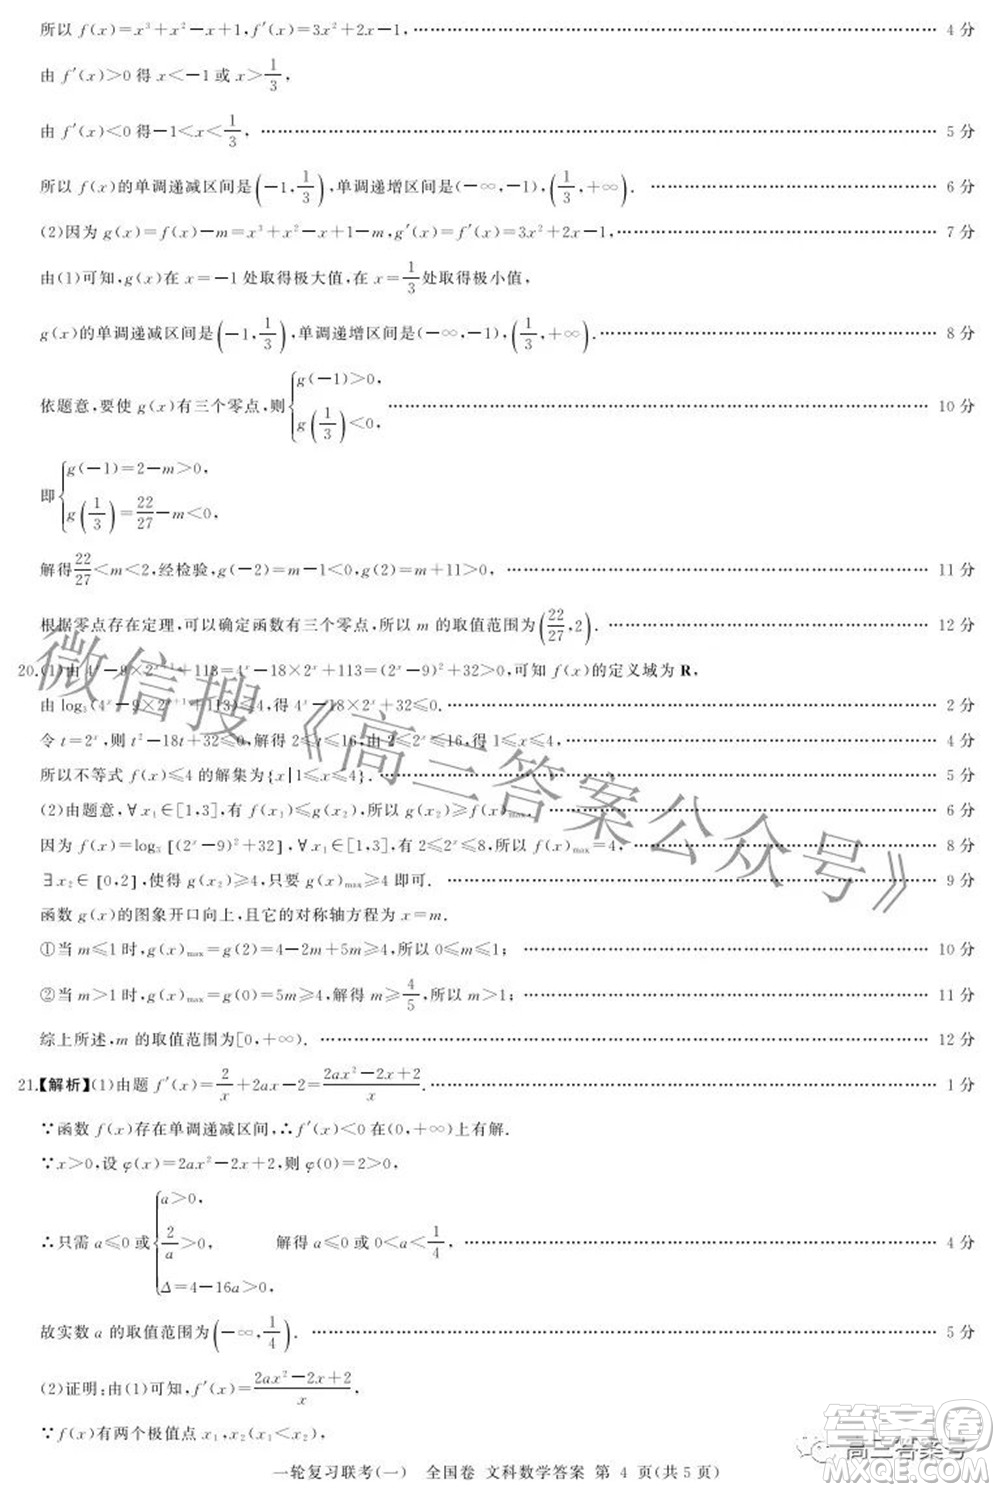 所以 f(x)=x³+x²-x+1,f′(x)=3x²+2x-1,……4 分
由 f′(x)>0 得 x<-1 或 x>1/3,
由 f′(x)<0 得-1<x<1/3,……5 分
所以 f(x)的单调递减区间是(-1,1/3),单调递增区间是(-∞,-1),(1/3,+∞).……6 分
(2)因为 g(x)=f(x)-m=x³+x²-x+1-m,g′(x)=f′(x)=3x²+2x-1,……7 分
由(1)可知,g(x)在 x=-1 处取得极大值,在 x=1/3 处取得极小值,
g(x)的单调递减区间是(-1,1/3),单调递增区间是(-∞,-1),(1/3,+∞).……8 分
依题意,要使 g(x)有三个零点,则{g(-1)>0, g(1/3)<0,……10 分
即{g(-1)=2-m>0, g(1/3)=22/27-m<0,
解得22/27<m<2,经检验,g(-2)=m-1<0,g(2)=m+11>0,……11 分
根据零点存在定理,可以确定函数有三个零点,所以 m 的取值范围为(22/27,2).……12 分
20.(1)由 4ˣ-9×2ˣ⁺¹+113=4ˣ-18×2ˣ+113=(2ˣ-9)²+32>0,可知 f(x)的定义域为 R,
由 log₃(4ˣ-9×2ˣ⁺¹+113)≤4,得 4ˣ-18×2ˣ+32≤0.……2 分
令 t=2ˣ,则 t²-18t+32≤0,解得 2≤t≤16,由 2≤2ˣ≤16,得 1≤x≤4,……4 分
所以不等式 f(x)≤4 的解集为{x|1≤x≤4}.……5 分
(2)由题意,∀x₁∈[1,3],有 f(x₁)≤g(x₂),所以 g(x₂)≥f(x)max,……6 分
因为 f(x)=log₃[(2ˣ-9)²+32],∀x₁∈[1,3],有 2≤2ˣ≤8,所以 f(x)max=4,……8 分
∃x₂∈[0,2],使得 g(x₂)≥4,只要 g(x)max≥4 即可.……9 分
函数 g(x)的图象开口向上,且它的对称轴方程为 x=m.
①当 m≤1 时,g(x)max=g(2)=4-2m+5m≥4,所以 0≤m≤1;……10 分
②当 m>1 时,g(x)max=g(0)=5m≥4,解得 m≥4/5,所以 m>1;……11 分
综上所述,m 的取值范围为[0,+∞).……12 分
21.【解析】(1)由题 f′(x)=2/x+2ax-2=(2ax²-2x+2)/x.……1 分
∵函数 f(x)存在单调递减区间,∴f′(x)<0 在(0,+∞)上有解.
∵x>0,设 φ(x)=2ax²-2x+2,则 φ(0)=2>0,
∴只需 a≤0 或{a>0, 2/a>0, Δ=4-16a>0, 解得 a≤0 或 0<a<1/4,……4 分
故实数 a 的取值范围为(-∞,1/4).……5 分
(2)证明:由(1)可知,f′(x)=(2ax²-2x+2)/x,
∵f(x)有两个极值点 x₁,x₂(x₁<x₂),
一轮复习联考(一) 全国卷 文科数学答案 第 4 页(共 5 页)
微信搜《高三答案公众号》
高三答案号
答案圈